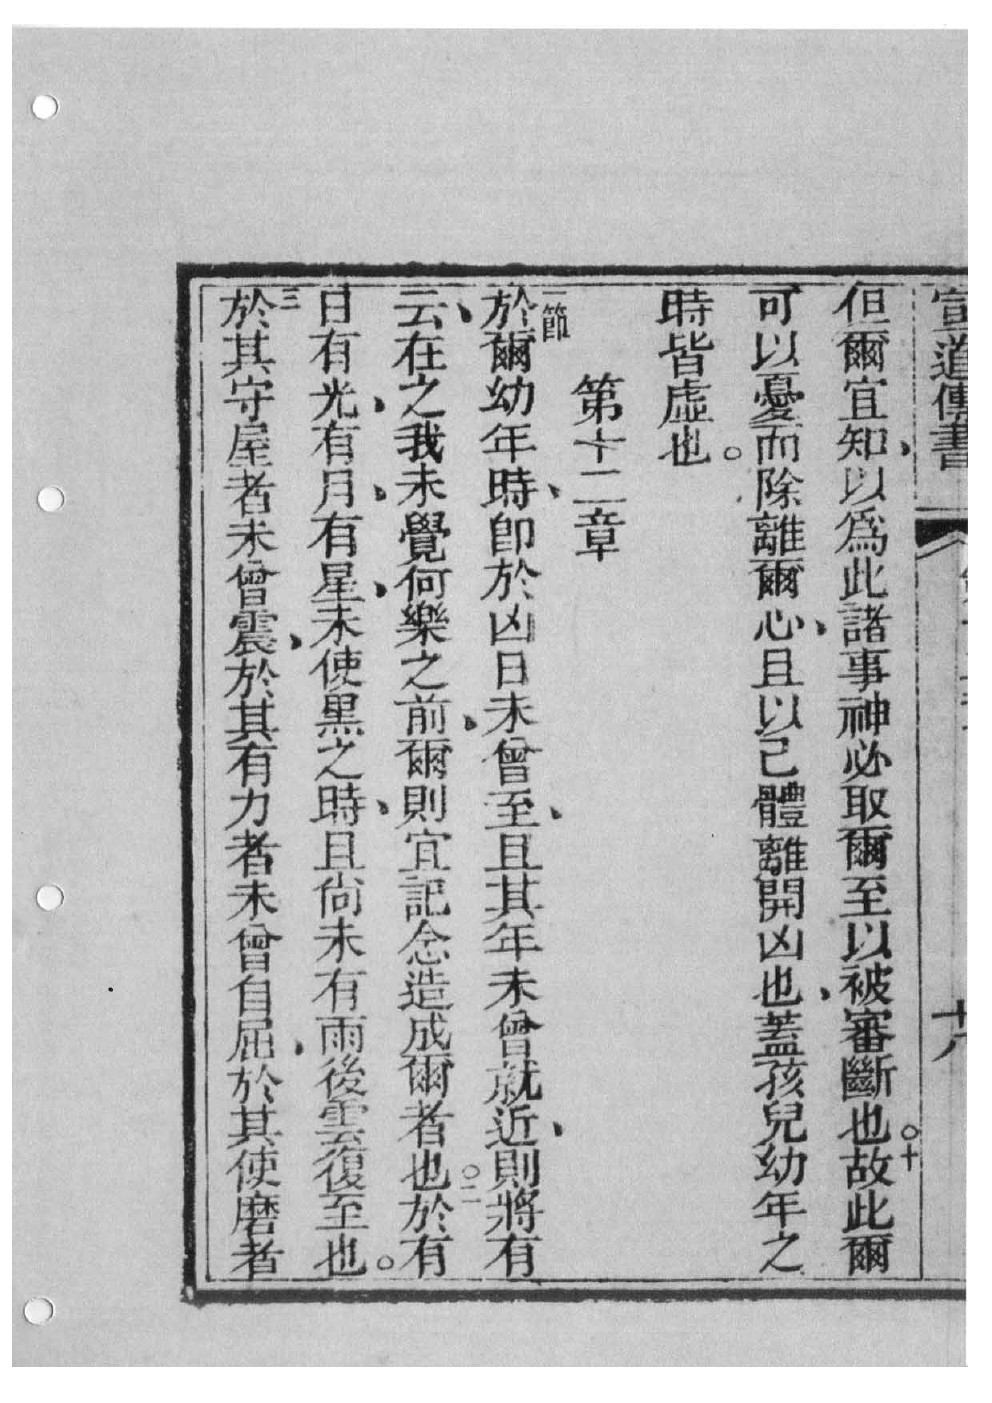 宣道傳書 十八
但爾宜知、以為此諸事神必取爾至以被審斷也。十故此爾
可以憂而除離爾心、且以己體離開凶也、蓋孩兒幼年之
時皆虛也。
第十二章
一節於爾幼年時、卽於凶日未曾至、且其年未曾就近、則將有
云、在之我未覺何樂之前、爾則宜記念造成爾者也。二於有
日有光、有月、有星、未使黑之時、且尙未有雨後雲復至也。
三於其守屋者未曾震、於其有力者未曾自屈、於其使磨者